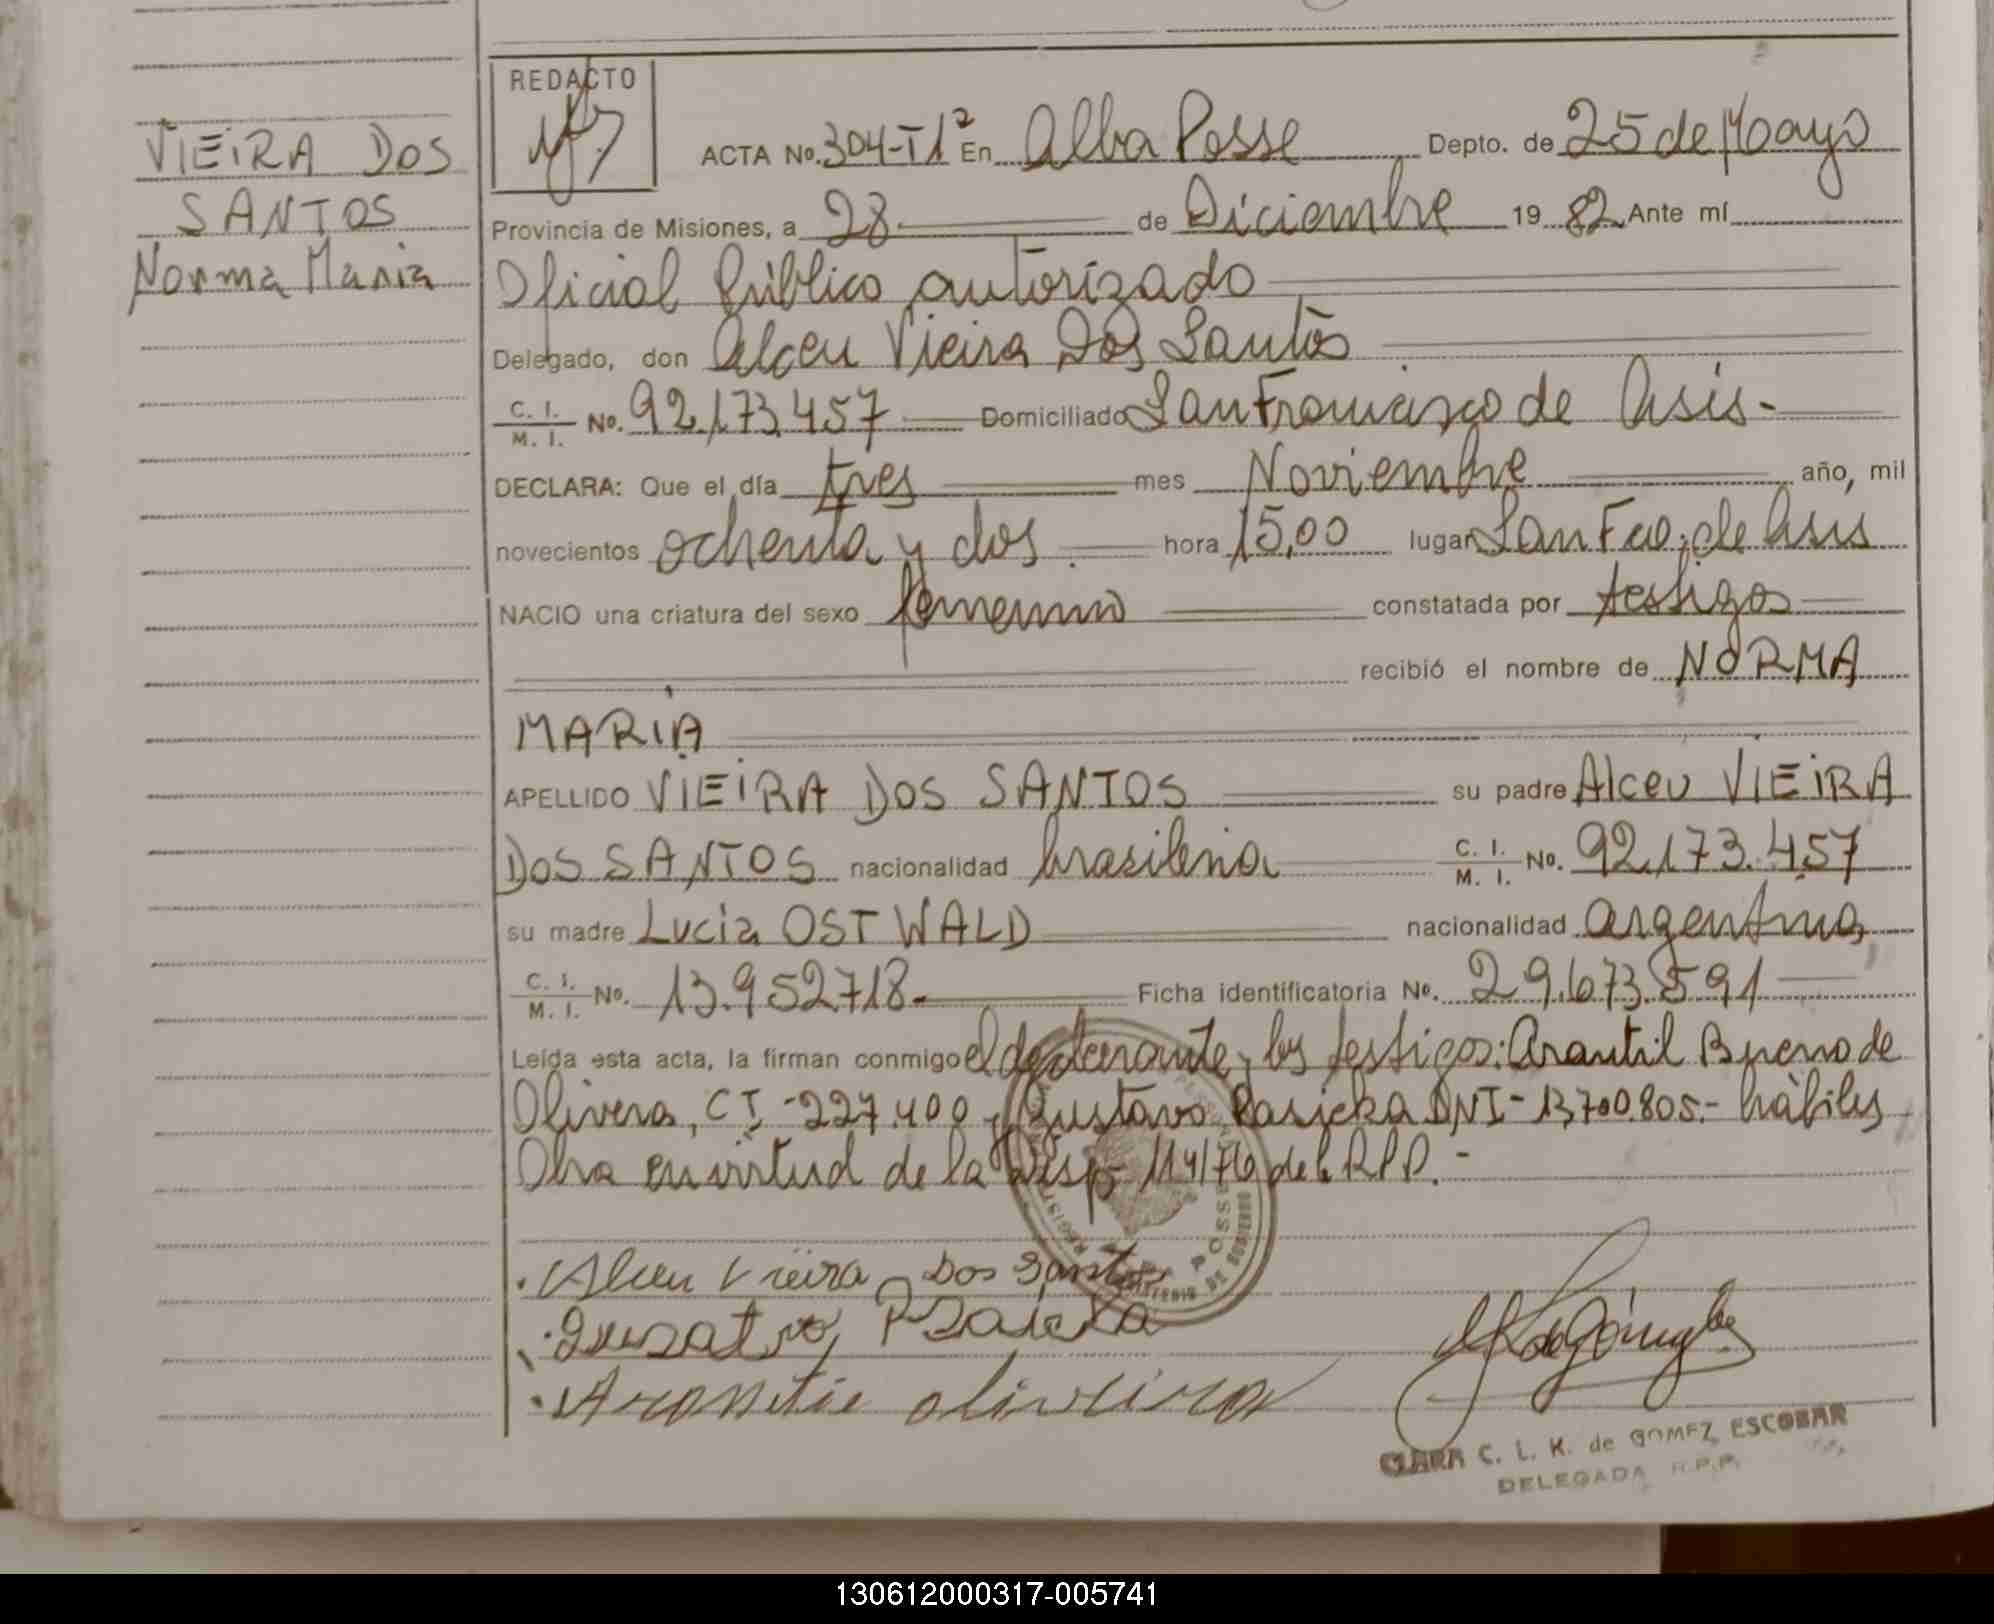 VIEIRA DOS
SANTOS
Norma Maria
REDACTO
ACTA No. 304-T1º En Alba Posse Depto. de 25 de Mayo
Provincia de Misiones, a 28 de Diciembre 19 82 Ante mí
Oficial Público autorizado
Delegado, don Alceu Vieira Dos Santos
C. I. / M. I. No. 92.173.457 Domiciliado San Francisco de Asis.-
DECLARA: Que el día tres mes Noviembre año, mil
novecientos ochenta y dos hora 15,00 lugar San Fco. de Asis
NACIO una criatura del sexo femenino constatada por testigos
recibió el nombre de NORMA
MARIA
APELLIDO VIEIRA DOS SANTOS su padre Alceu VIEIRA
DOS SANTOS nacionalidad brasilena C. I. / M. I. No. 92.173.457
su madre Lucia OSTWALD nacionalidad argentina,
C. I. / M. I. No. 13.952718.- Ficha identificatoria No. 29.673.591
Leída esta acta, la firman conmigo el declarante y los testigos: Arantil Bueno de
Olivera, CI -227.400 y Gustavo Rasicka DNI- 13.700.805.- hàbiles
Obra en virtud de la Disp. 114/76 del R.P.P.-
Alceu Vieira Dos Santos
Oliveira
CLARA C. L. K. de GOMEZ ESCOBAR
DELEGADA R.P.P.
130612000317-005741